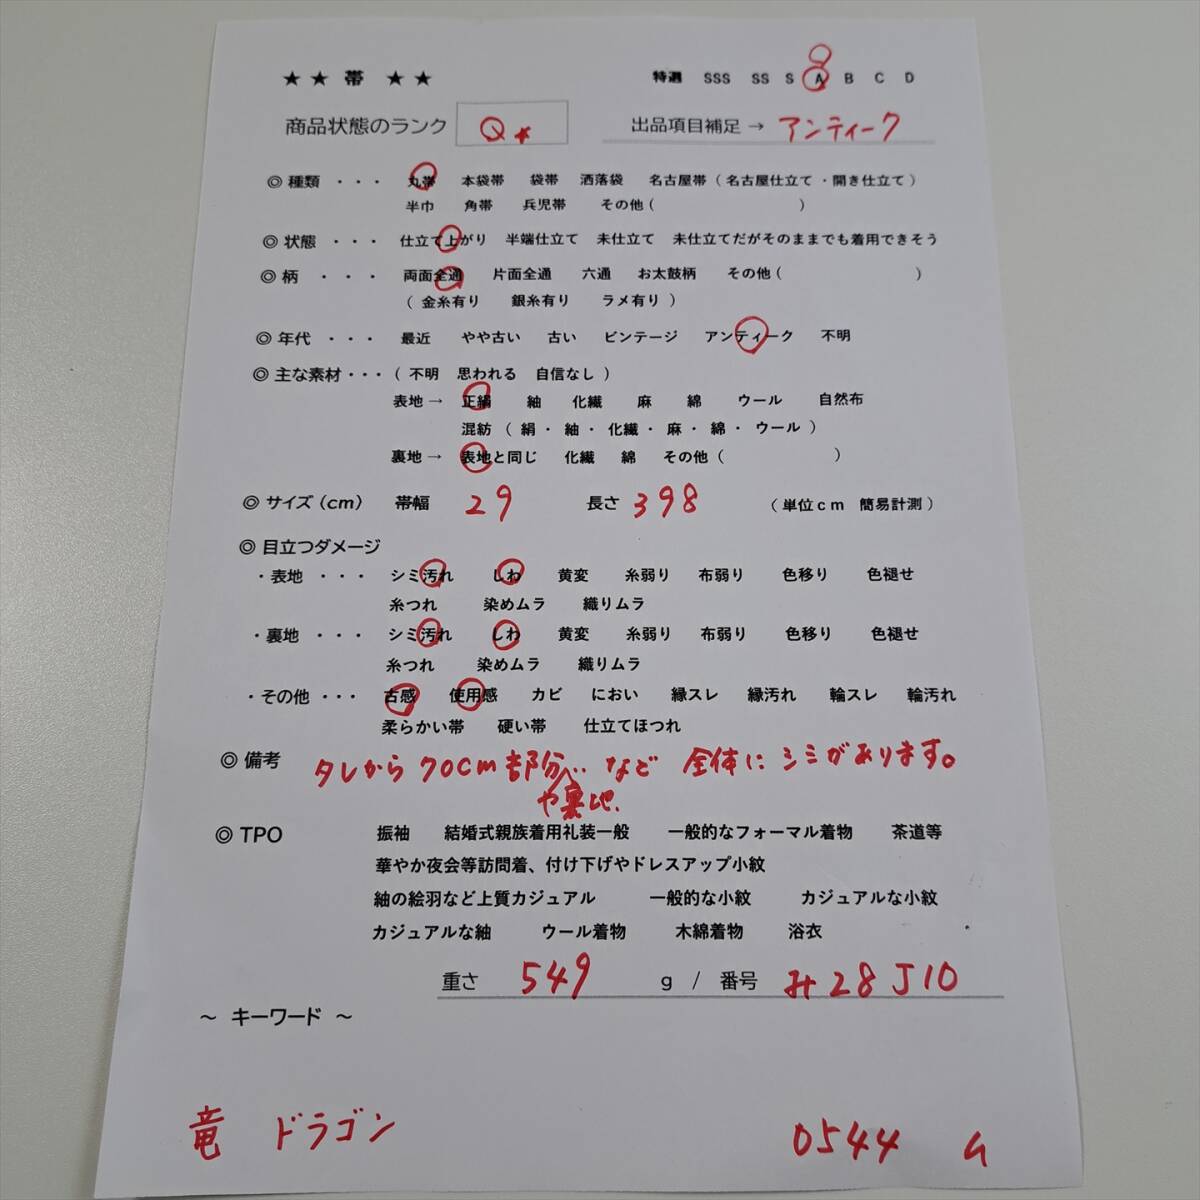 ★ ★ 帯 ★ ★ 特選 SSS SS S A B C D
商品状態のランク Q★ 出品項目補足 → アンティーク
◎ 種類 ・・・ 丸帯 本袋帯 袋帯 洒落袋 名古屋帯 ( 名古屋仕立て ・ 開き仕立て )
半巾 角帯 兵児帯 その他 ( )
◎ 状態 ・・・ 仕立て上がり 半端仕立て 未仕立て 未仕立てだがそのままでも着用できそう
◎ 柄 ・・・ 両面全通 片面全通 六通 お太鼓柄 その他 ( )
( 金糸有り 銀糸有り ラメ有り )
◎ 年代 ・・・ 最近 やや古い 古い ビンテージ アンティーク 不明
◎ 主な素材・・・ ( 不明 思われる 自信なし )
表地 → 正絹 紬 化繊 麻 綿 ウール 自然布
混紡 ( 絹・ 紬・ 化繊・ 麻・ 綿・ ウール )
裏地 → 表地と同じ 化繊 綿 その他 ( )
◎ サイズ (cm) 帯幅 29 長さ 398 ( 単位cm 簡易計測 )
◎ 目立つダメージ
・表地 ・・・ シミ汚れ しわ 黄変 糸弱り 布弱り 色移り 色褪せ
糸つれ 染めムラ 織りムラ
・裏地 ・・・ シミ汚れ しわ 黄変 糸弱り 布弱り 色移り 色褪せ
糸つれ 染めムラ 織りムラ
・その他 ・・・ 古感 使用感 カビ におい 縁スレ 縁汚れ 輪スレ 輪汚れ
柔らかい帯 硬い帯 仕立てほつれ
◎ 備考 タレから70cm部分‥など 全体にシミがあります。
や裏地
◎ TPO 振袖 結婚式親族着用礼装一般 一般的なフォーマル着物 茶道等
華やか夜会等訪問着、付け下げやドレスアップ小紋
紬の絵羽など上質カジュアル 一般的な小紋 カジュアルな小紋
カジュアルな紬 ウール着物 木綿着物 浴衣
重さ 549 g / 番号 み28J10
～ キーワード ～
竜 ドラゴン
0544 ム